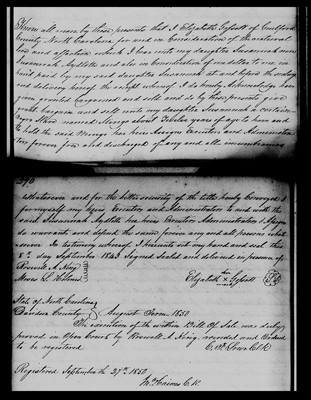 Know all men by these presents that I Elizabeth Gossett of Guilford
County North Carolina for and in Consideration of the natural
love and affection which I bear unto my daughter Susannah now
Susannah Aydlotte and also in Consideration of one dollar to me in
hand paid by my said daughter Susannah at and before the sealing
and delivery hereof the receipt whereof I do hereby Acknowledge have
given granted bargained and sold and do by these presents give
grant bargain and sell unto my daughter Susannah a certain
Negro Slave named Mingo about twelve years of age to have and
to hold the said Mingo her heirs Assigns Executors and Administra
tors forever free and discharged of any and all incumbrances
290
whatsoever and for the better security of the title hereby Conveyed I
for myself my heirs Executors and Administrators to and with the
said Susannah Aydlotte her heirs Executors Administrators & Assigns
do warrant and defend the same from any and all persons whom
soever In testimony whereof I hereunto set my hand and seal this
5th day September 1843 Signed Sealed and delivered in presence of
Roswell A. King
Moses L. Holmes Elizabeth x Gossett
State of North Carolina
Davidson County August Term 1850
The execution of the within Bill of Sale was duly
proved in Open Court by Roswell A. King, recorded and Ordered
to be registered C. F. Lowe C.C.K.
Registered September the 27th 1850